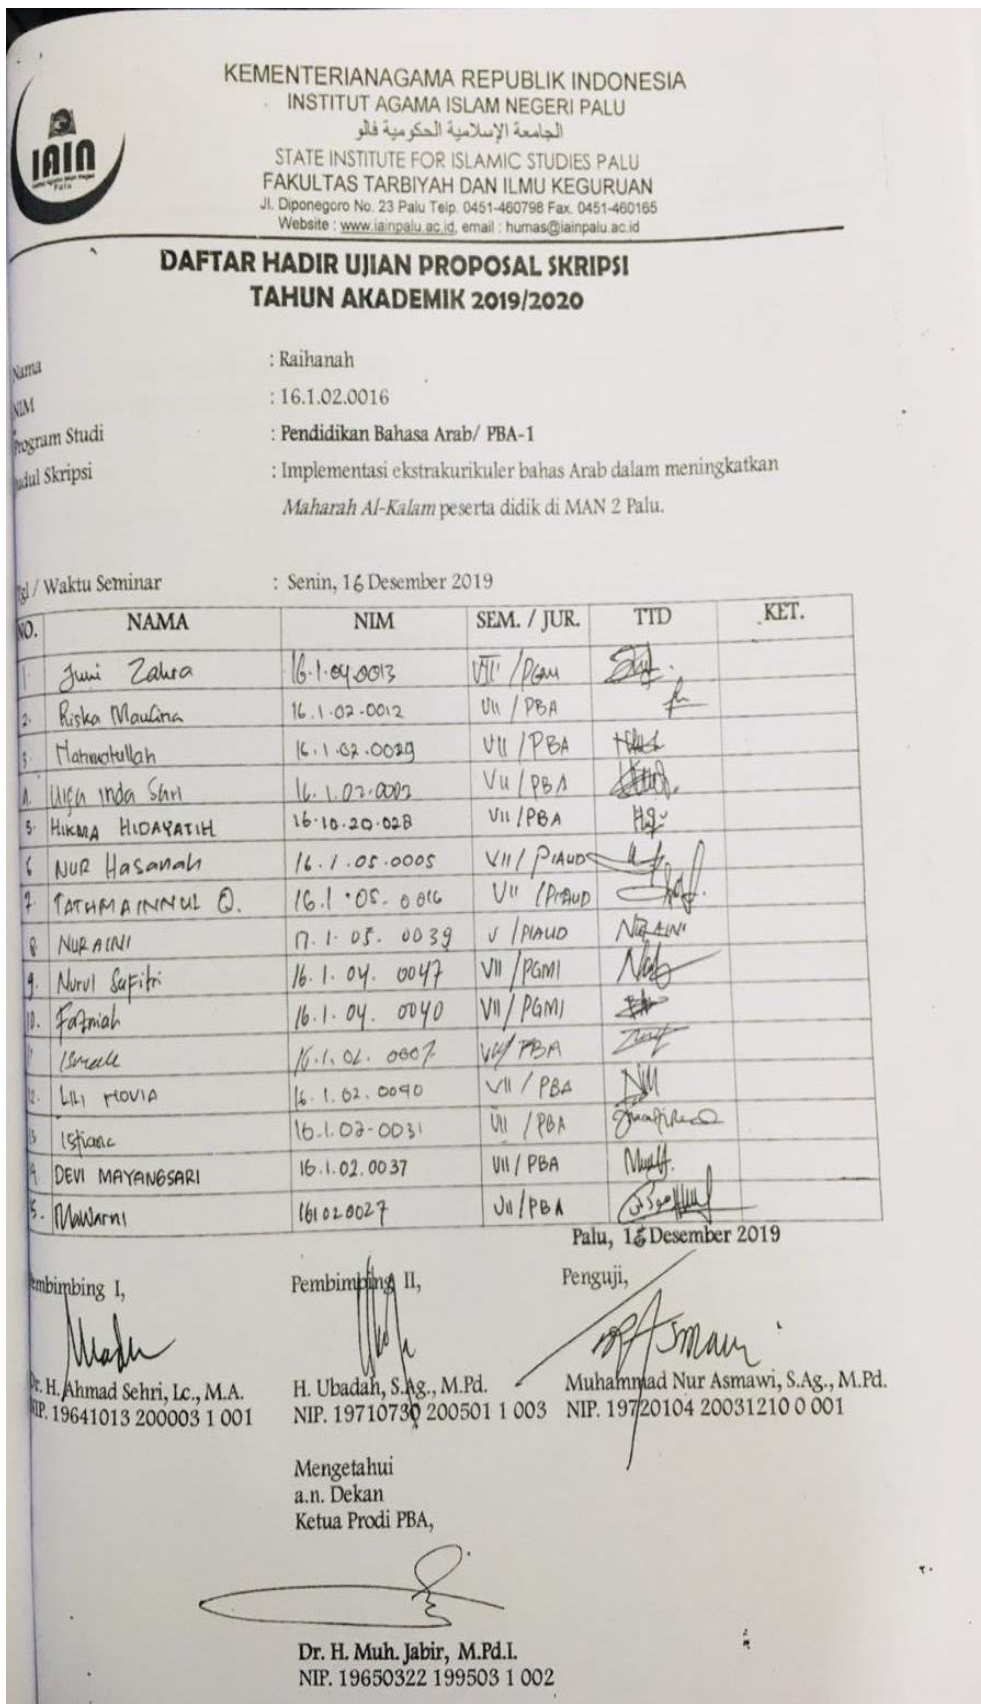 IAIN
Palu
KEMENTERIANAGAMA REPUBLIK INDONESIA
INSTITUT AGAMA ISLAM NEGERI PALU
الجامعة الإسلامية الحكومية فالو
STATE INSTITUTE FOR ISLAMIC STUDIES PALU
FAKULTAS TARBIYAH DAN ILMU KEGURUAN
Jl. Diponegoro No. 23 Palu Telp. 0451-460798 Fax. 0451-460165
Website : www.iainpalu.ac.id, email : humas@iainpalu.ac.id
DAFTAR HADIR UJIAN PROPOSAL SKRIPSI
TAHUN AKADEMIK 2019/2020
Nama : Raihanah
NIM : 16.1.02.0016
Program Studi : Pendidikan Bahasa Arab/ PBA-1
udul Skripsi : Implementasi ekstrakurikuler bahas Arab dalam meningkatkan
Maharah Al-Kalam peserta didik di MAN 2 Palu.
Tgl / Waktu Seminar : Senin, 16 Desember 2019
NO. NAMA NIM SEM. / JUR. TTD KET.
1. Juni Zahra 16.1.04.0013 VII /PGMI
2. Riska Maulina 16.1.02.0012 VII / PBA
3. Rahmatullah 16.1.02.0029 VII / PBA
4. Ulfa Inda Sari 16.1.02.0002 VII / PBA
5. HIKMA HIDAYATIH 16.10.20.028 VII / PBA
6 NUR Hasanah 16.1.05.0005 VII / PIAUD
7. TATHMAINNUL Q. 16.1.05.0016 VII /PIAUD
8 NURAINI 17.1.05.0039 V / PIAUD NURAINI
9. Nurul Safitri 16.1.04.0047 VII / PGMI
10. Fatmiah 16.1.04.0040 VII / PGMI
11 16.1.02.0007 VII/ PBA
12. LILI NOVIA 16.1.02.0040 VII / PBA
13 Istiana 16.1.02-0031 VII / PBA
14 DEVI MAYANGSARI 16.1.02.0037 VII / PBA
15. Mawarni 161020027 VII/PBA
Palu, 16 Desember 2019
embimbing I, Pembimbing II, Penguji,
Dr. H. Ahmad Sehri, Lc., M.A. H. Ubadah, S.Ag., M.Pd. Muhammad Nur Asmawi, S.Ag., M.Pd.
NIP. 19641013 200003 1 001 NIP. 19710730 200501 1 003 NIP. 19720104 20031210 0 001
Mengetahui
a.n. Dekan
Ketua Prodi PBA,
Dr. H. Muh. Jabir, M.Pd.I.
NIP. 19650322 199503 1 002